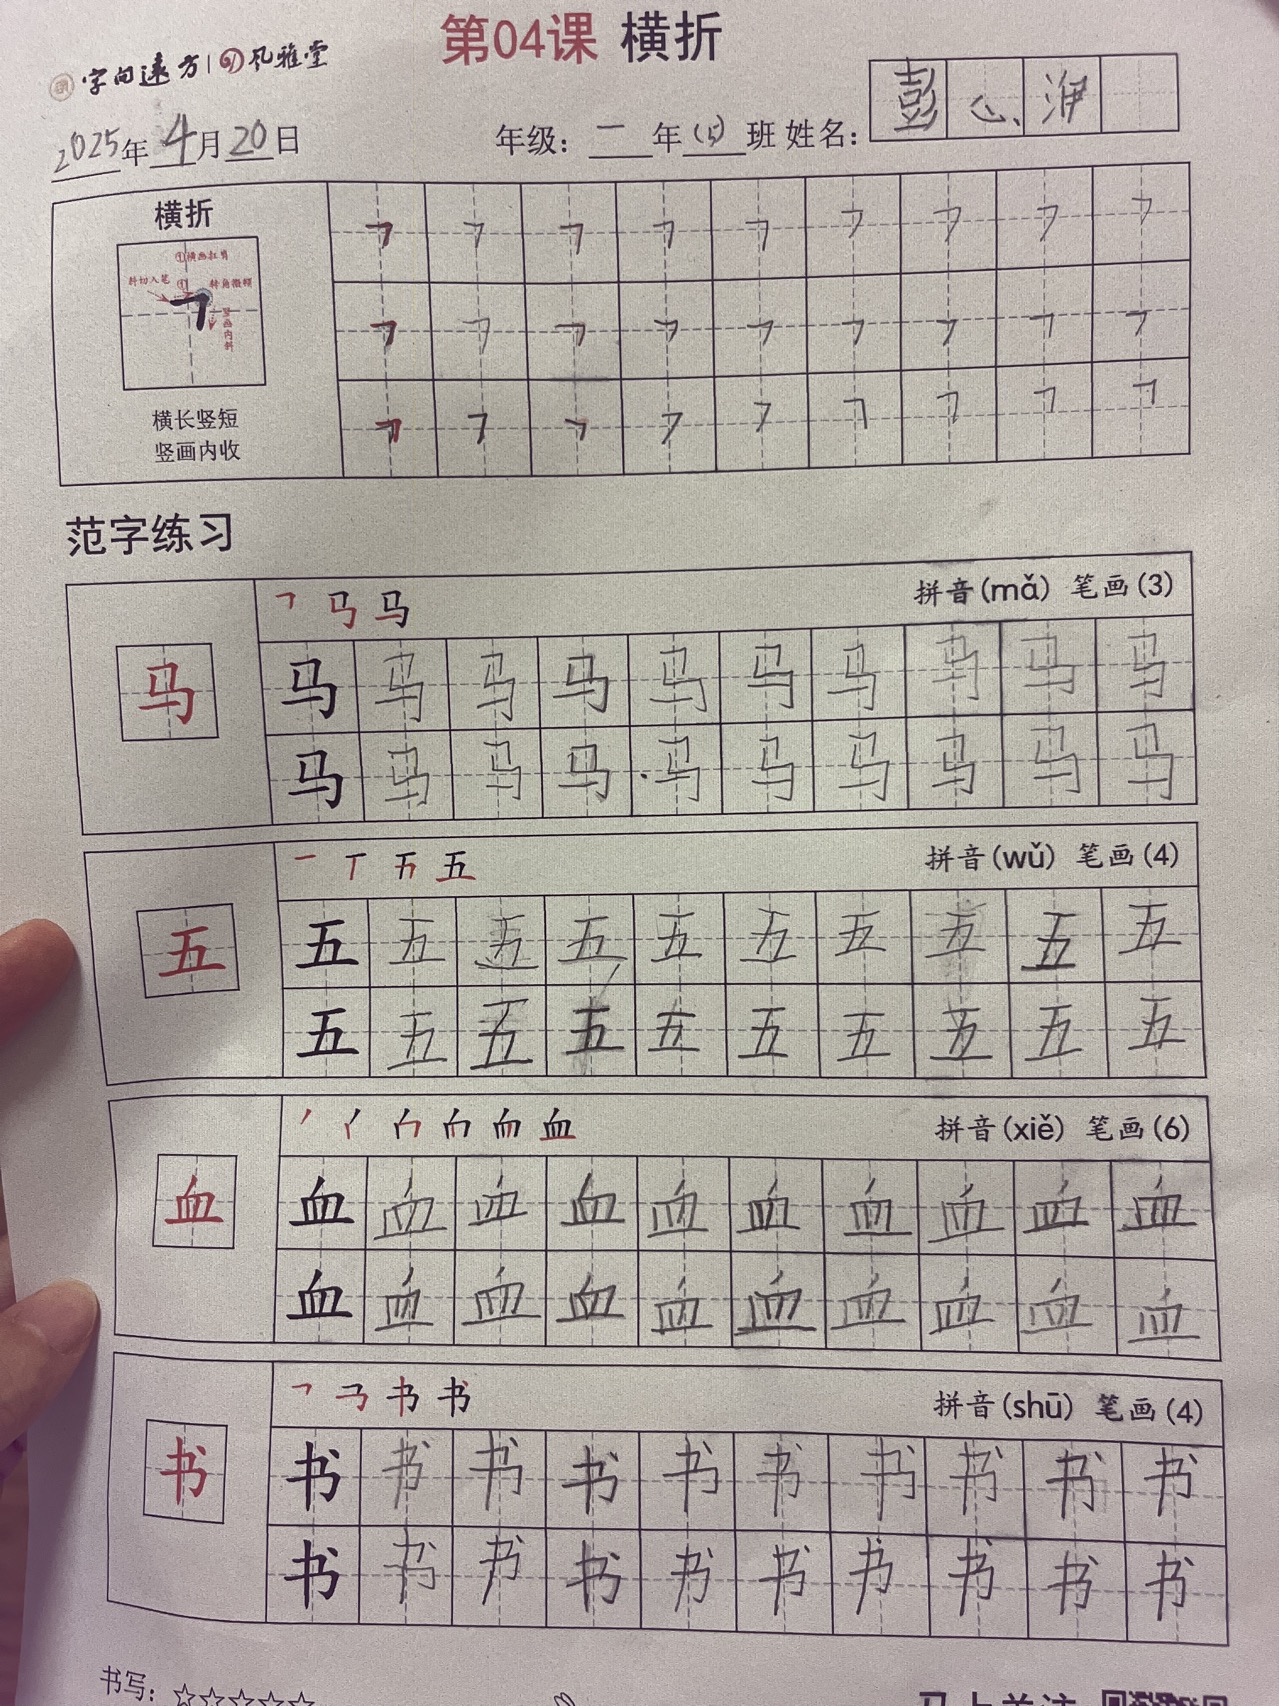 第04课 横折
字向远方 | 风雅堂
2025年4月20日 年级：一年(5)班 姓名：彭心洢
横折
①横画扛肩
斜切入笔 ① 转角微顿
竖画内斜
横长竖短
竖画内收
范字练习
㇕ 马 马 拼音(mǎ) 笔画(3)
马 马 马 马 马 马 马 马 马 马 马
马 马 马 马 马 马 马 马 马 马
一 丅 五 五 拼音(wǔ) 笔画(4)
五 五 五 五 五 五 五 五 五 五 五
五 五 五 五 五 五 五 五 五 五
血 拼音(xiě) 笔画(6)
血 血 血 血 血 血 血 血 血 血 血
血 血 血 血 血 血 血 血 血 血
书 书 拼音(shū) 笔画(4)
书 书 书 书 书 书 书 书 书 书 书
书 书 书 书 书 书 书 书 书 书
书写：☆☆☆☆☆ 马上关注